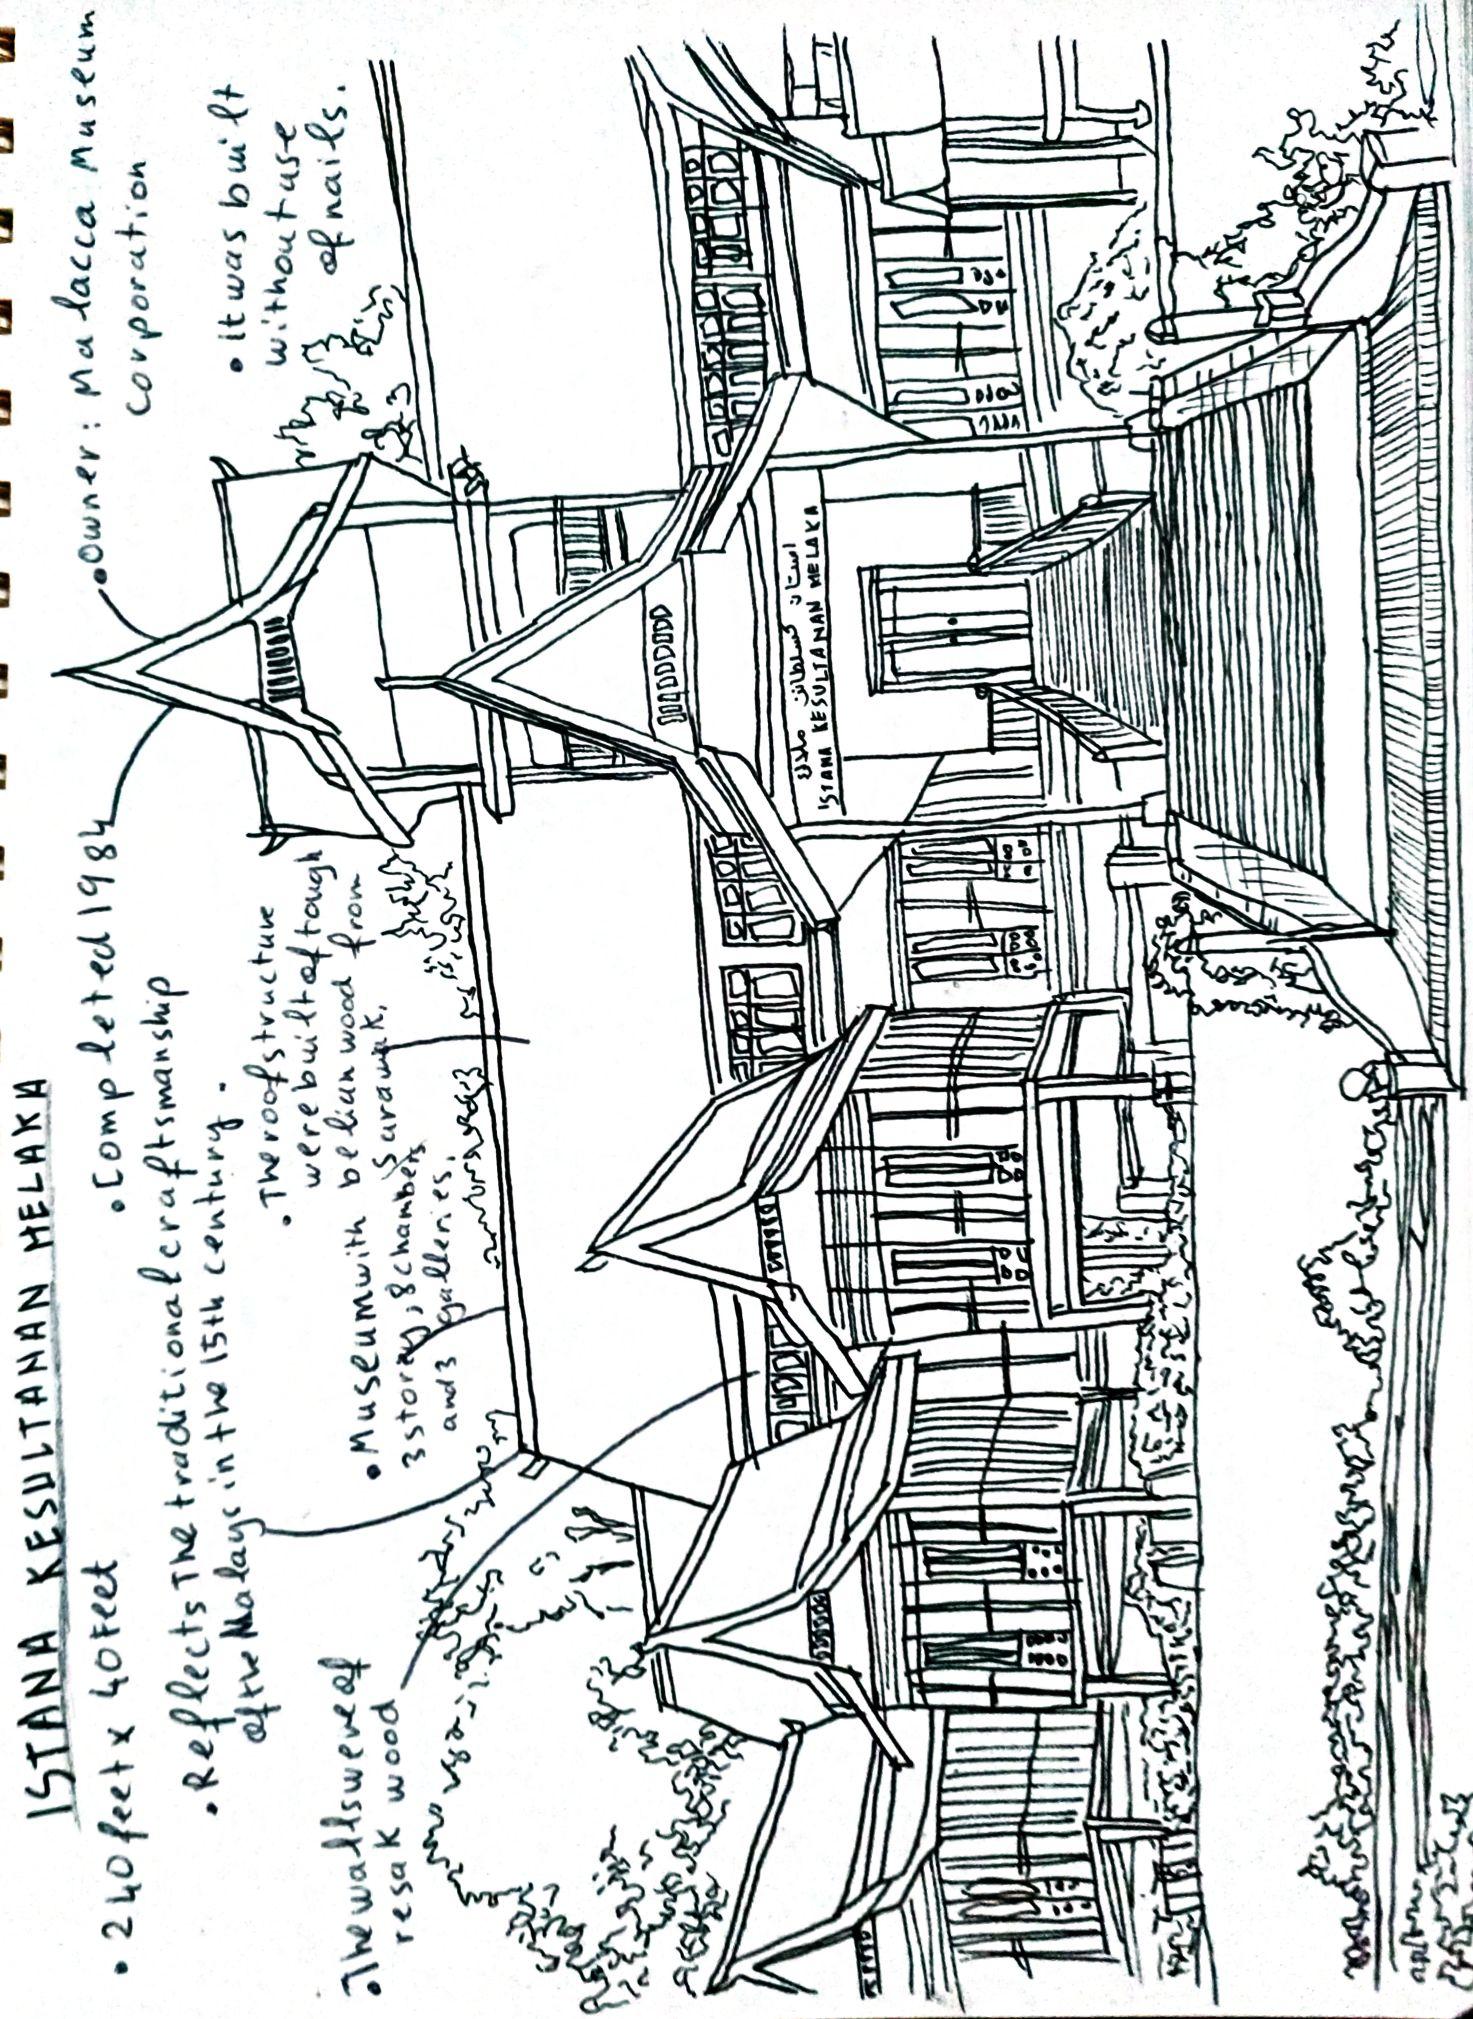 ISTANA KESULTANAN MELAKA
• 240 feet x 40 Feet
• Completed 1984
• Owner: Malacca Museum
corporation
• Reflects The traditional craftsmanship
of the Malays in the 15th century.
• The roof structure
were built of tough
belian wood from
Sarawak.
• It was built
without use
of nails.
• Museum with
3 storey, 8 chambers
and 3 galleries.
• The walls were of
resak wood
استان كسلطانن ملاك
ISTANA KESULTANAN MELAKA